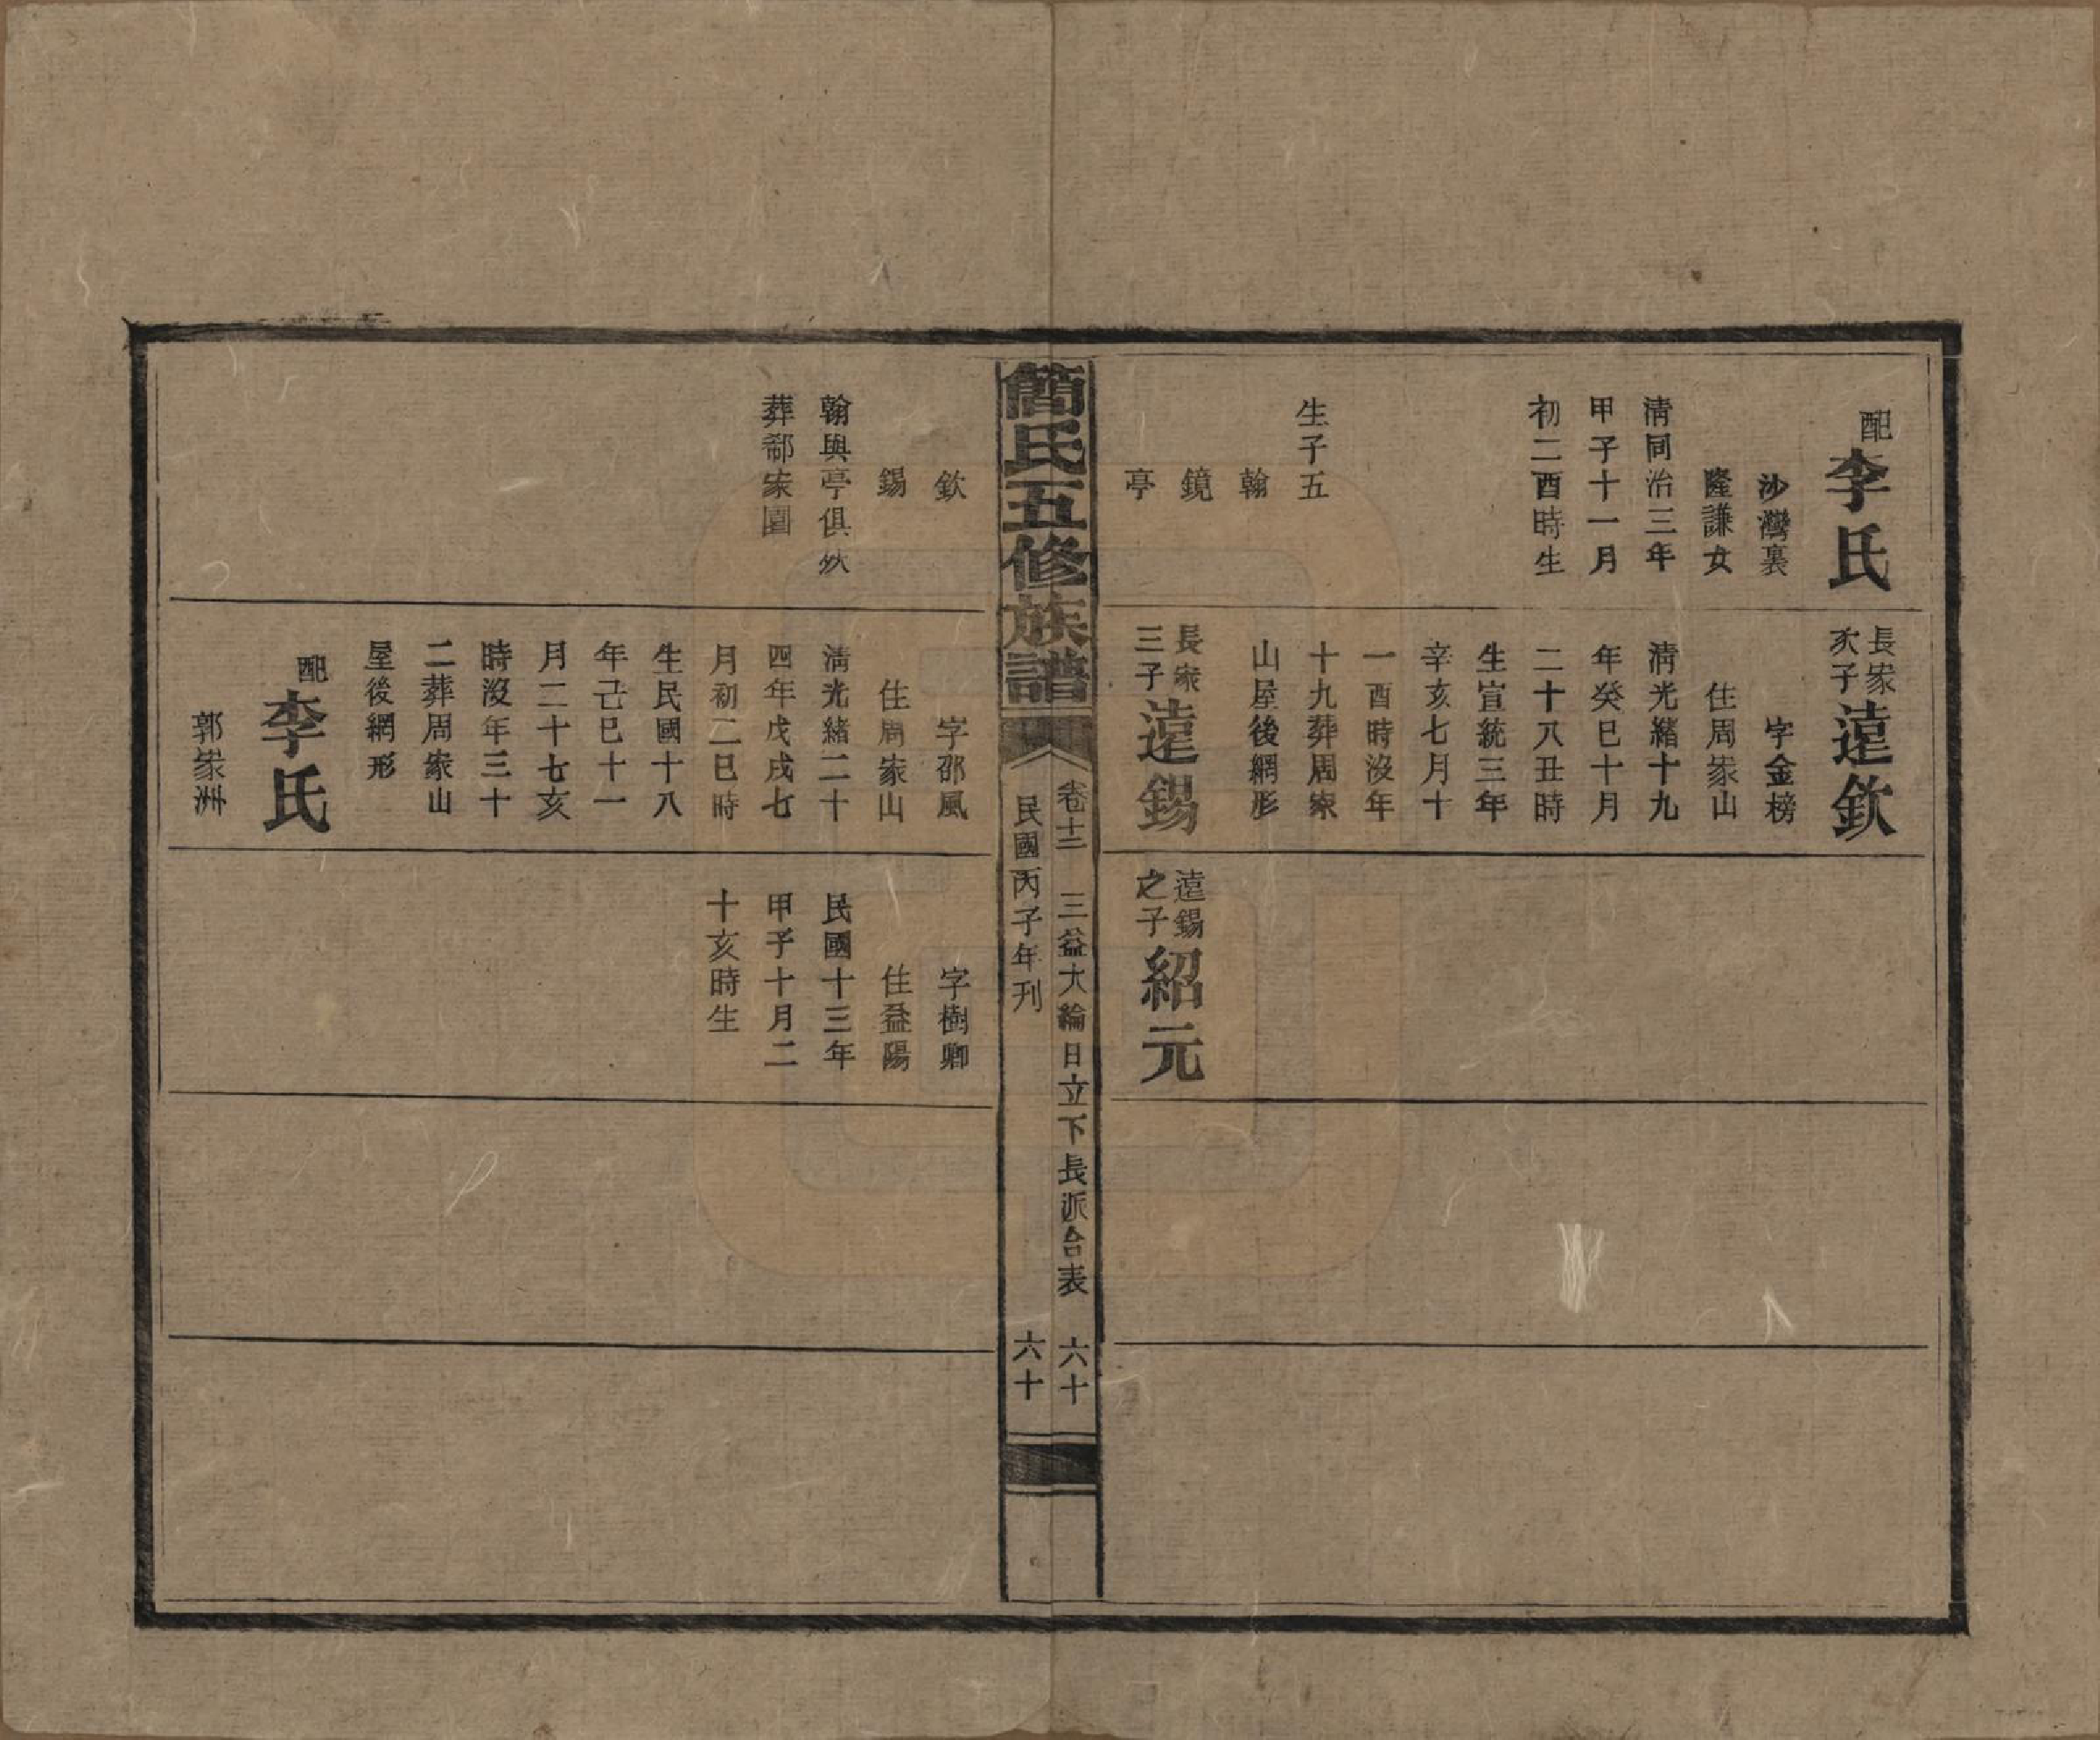 配
李氏
沙灣裏
隆謙女
清同治三年
甲子十一月
初二酉時生
生子五
翰
鏡
亭
長家
次子
遠欽
字金榜
住周家山
清光緒十九
年癸巳十月
二十八丑時
生宣統三年
辛亥七月十
一酉時沒年
十九葬周家
山屋後網形
長家
三子
遠錫
遠錫
之子
紹元
簡氏五修族譜
卷十三 三益大綸日立下長派合表 六十
民國丙子年刊 六十
欽
錫
翰與亭俱殀
葬郗家園
字邵風
住周家山
清光緒二十
四年戊戌七
月初二巳時
生民國十八
年己巳十一
月二十七亥
時沒年三十
二葬周家山
屋後網形
配
李氏
郭家洲
字樹卿
住益陽
民國十三年
甲子十月二
十亥時生